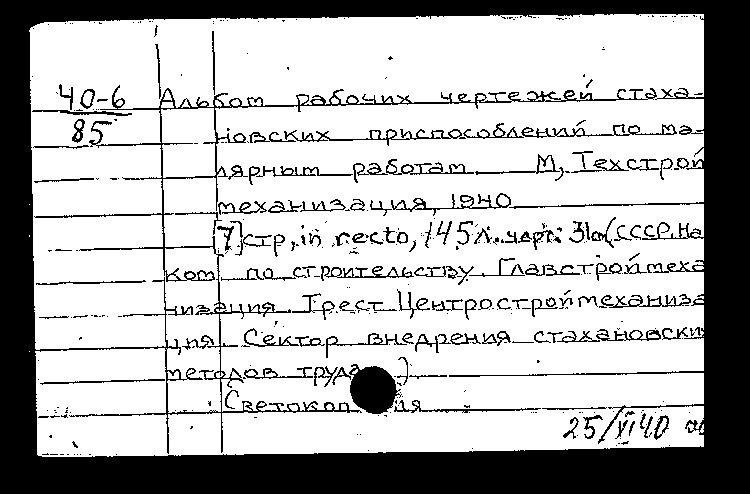 40-6
85
Альбом рабочих чертежей стаха-
новских приспособлений по ма-
лярным работам. М, Техстрой
механизация, 1940
[7] стр, in recto, 145 л. черт. 31см (СССР. На
ком. по строительству. Главстроймеха
низация. Трест Центростроймеханиза
ция. Сектор внедрения стахановски
методов труда )
25/VI 40